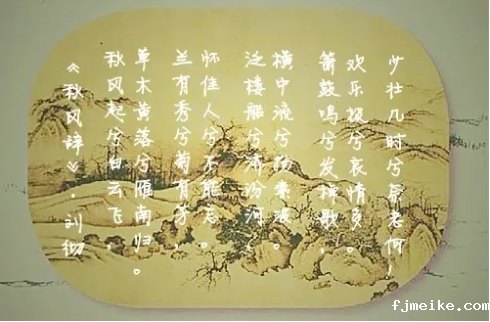 《秋风辞》·刘彻
秋风起兮白云飞，
草木黄落兮雁南归。
兰有秀兮菊有芳，
怀佳人兮不能忘。
泛楼船兮济汾河，
横中流兮扬素波。
箫鼓鸣兮发棹歌，
欢乐极兮哀情多。
少壮几时兮奈老何！
fjmeike.com